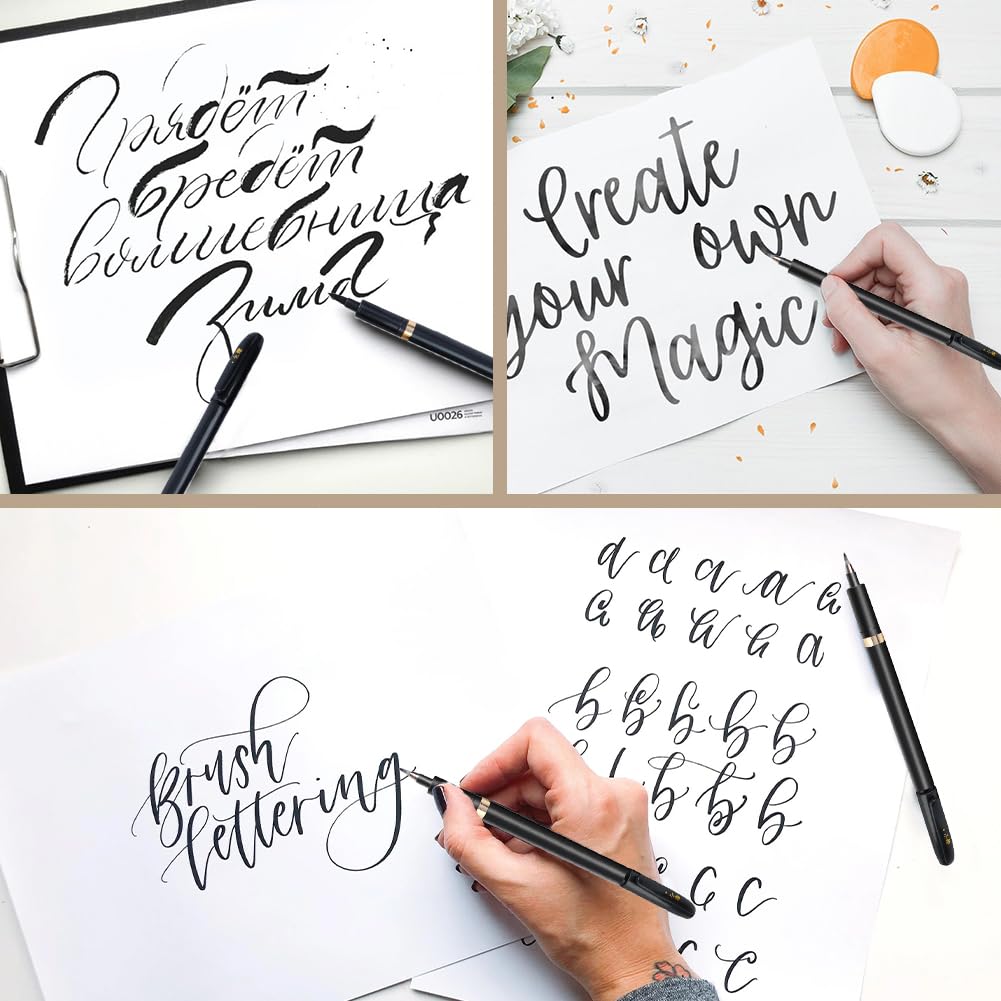 Грядёт
бредёт
волшебница
Зима
U0026
Create
your own
Magic
Brush
lettering
a a a a a
a a a a a
b b b b b
b b b b
c c
c